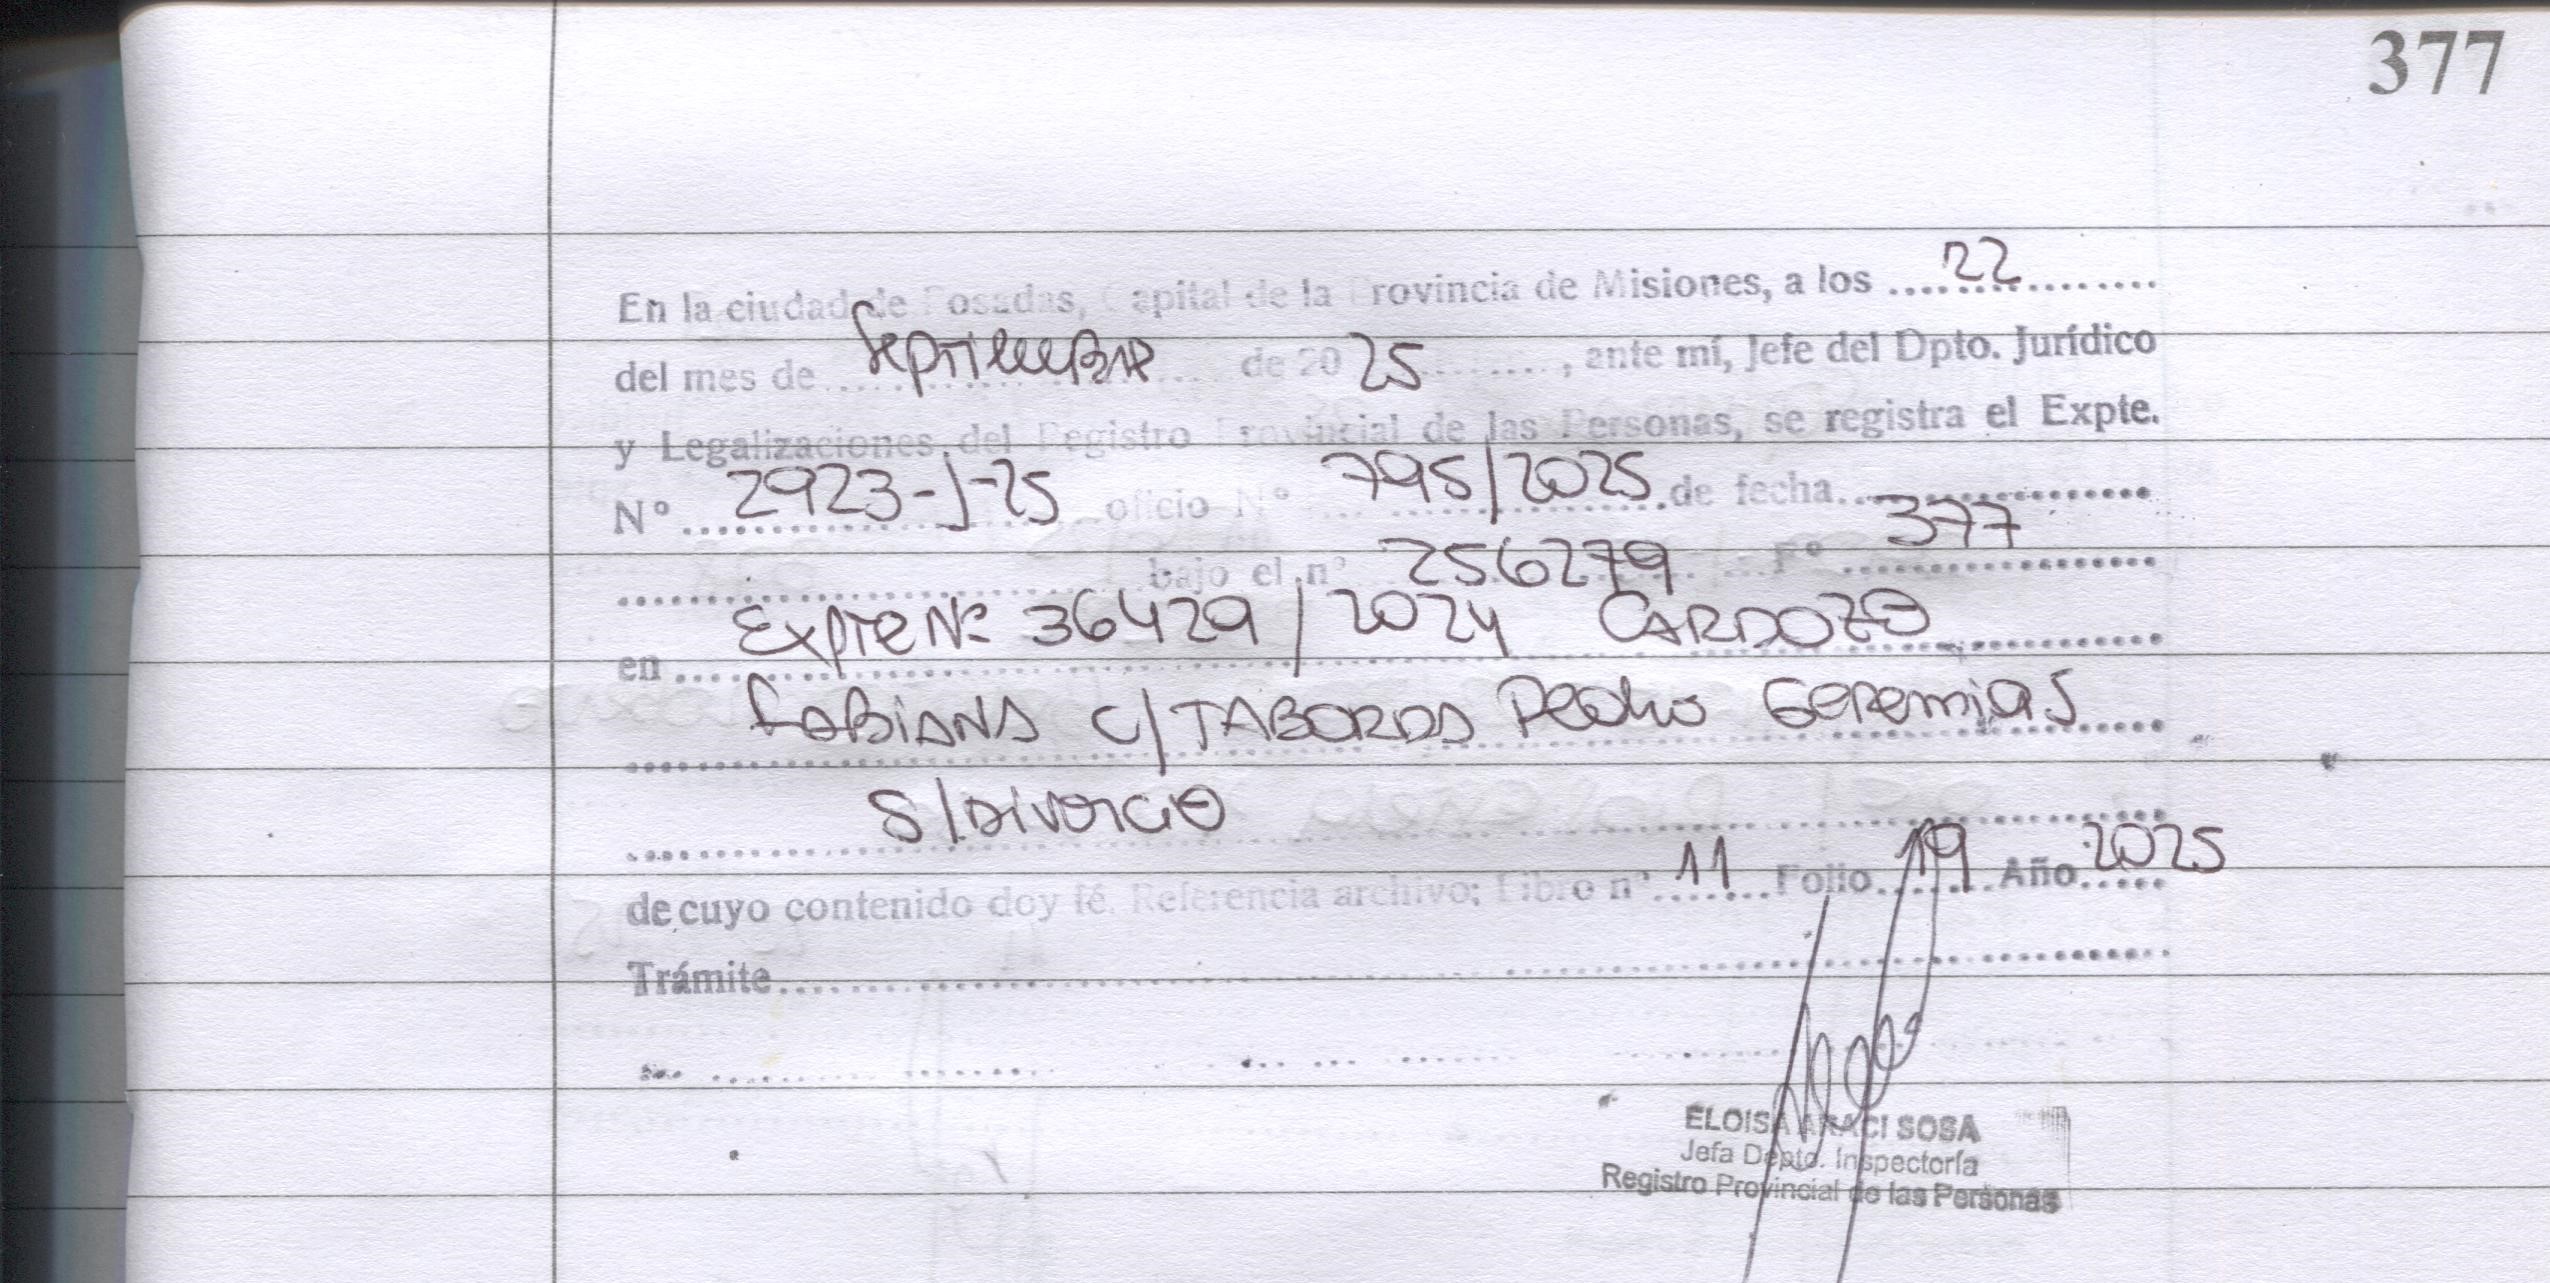 377
En la ciudad de Posadas, Capital de la Provincia de Misiones, a los ....22..........
del mes de ....Septiembre.... de 20 25 ........, ante mí, Jefe del Dpto. Jurídico
y Legalizaciones, del Registro Provincial de las Personas, se registra el Expte.
Nº ....2923-J-25.... oficio Nº ....795/2025.... de fecha....................
.................... bajo el nº ....256279.... Fº ....377....
en ....Expte Nº 36429/2024 CARDOZO....
....FABIANA C/ TABORDA Pedro Geremias....
....S/ DIVORCIO....
de cuyo contenido doy fé. Referencia archivo: Libro nº ....11.... Folio ....19.... Año 2025
Trámite................................................
ELOISA ARACI SOSA
Jefa Depto. Inspectoría
Registro Provincial de las Personas